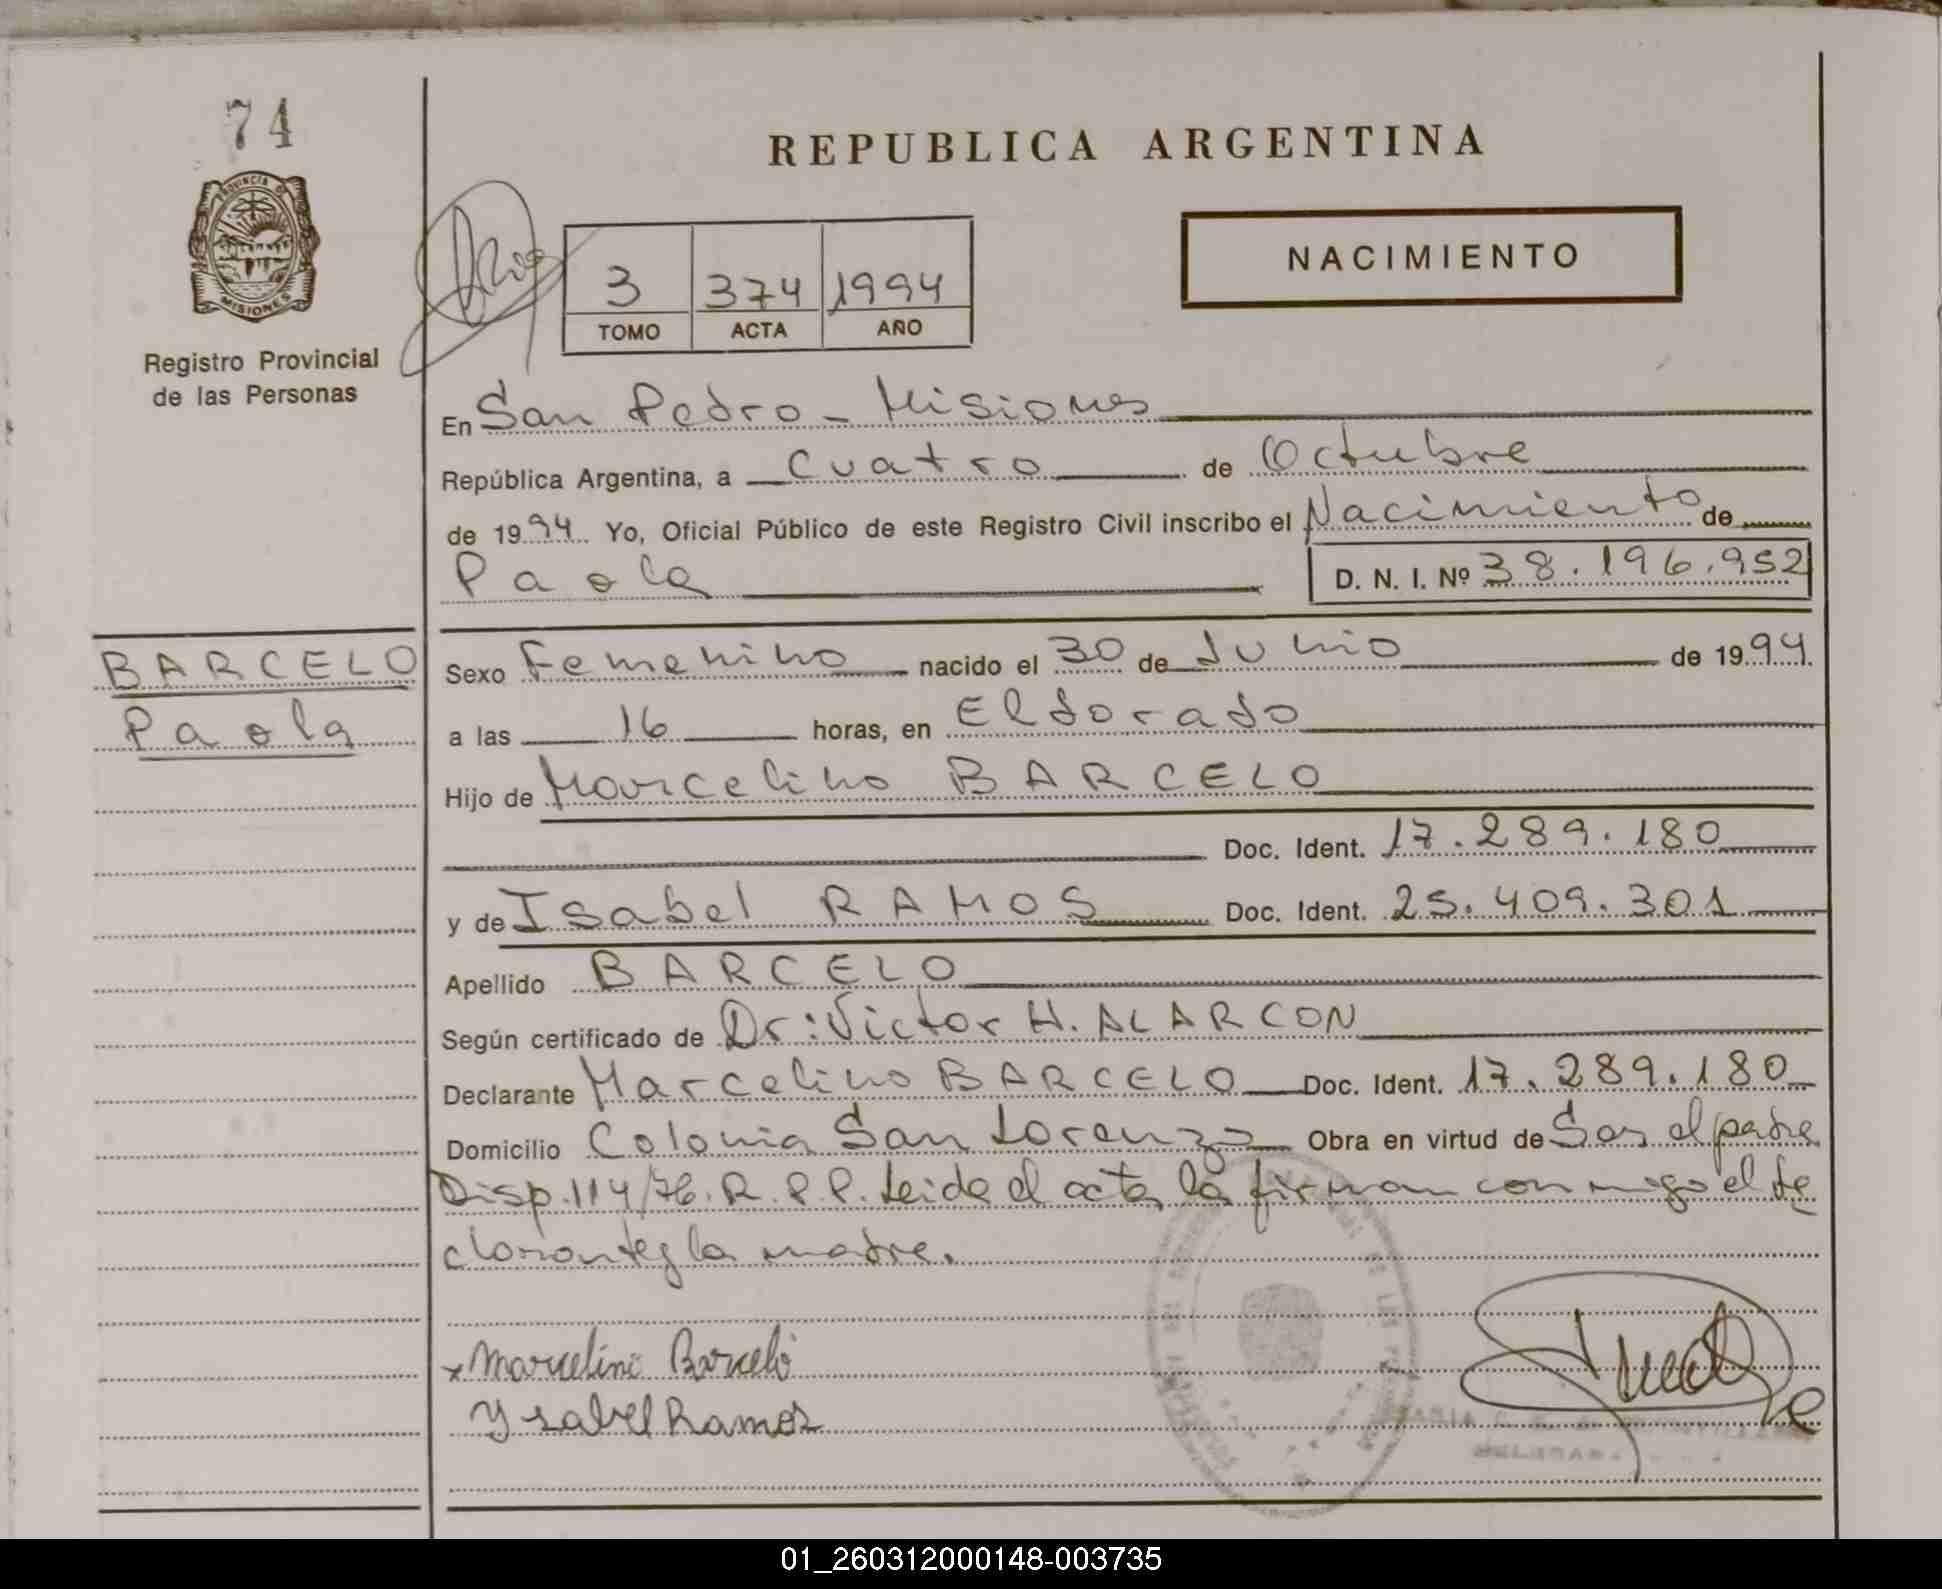 74
REPUBLICA ARGENTINA
PROVINCIA DE
MISIONES
Registro Provincial
de las Personas
3 374 1994
TOMO ACTA AÑO
NACIMIENTO
En San Pedro - Misiones
República Argentina, a cuatro de Octubre
de 1994. Yo, Oficial Público de este Registro Civil inscribo el Nacimiento de
Paola
D. N. I. Nº 38.196.952
BARCELO
Paola
Sexo Femenino nacido el 30 de Junio de 1994
a las 16 horas, en Eldorado
Hijo de Marcelino BARCELO
Doc. Ident. 17.289.180
y de Isabel RAMOS Doc. Ident. 25.409.301
Apellido BARCELO
Según certificado de Dr: Victor H. ALARCON
Declarante Marcelino BARCELO Doc. Ident. 17.289.180
Domicilio Colonia San Lorenzo Obra en virtud de Ser el padre
Disp. 114/76. R.P.P. Leida el acta, la firman conmigo el de
clarante y la madre.
x Marcelino Barceló
Ysabel Ramos
01_260312000148-003735